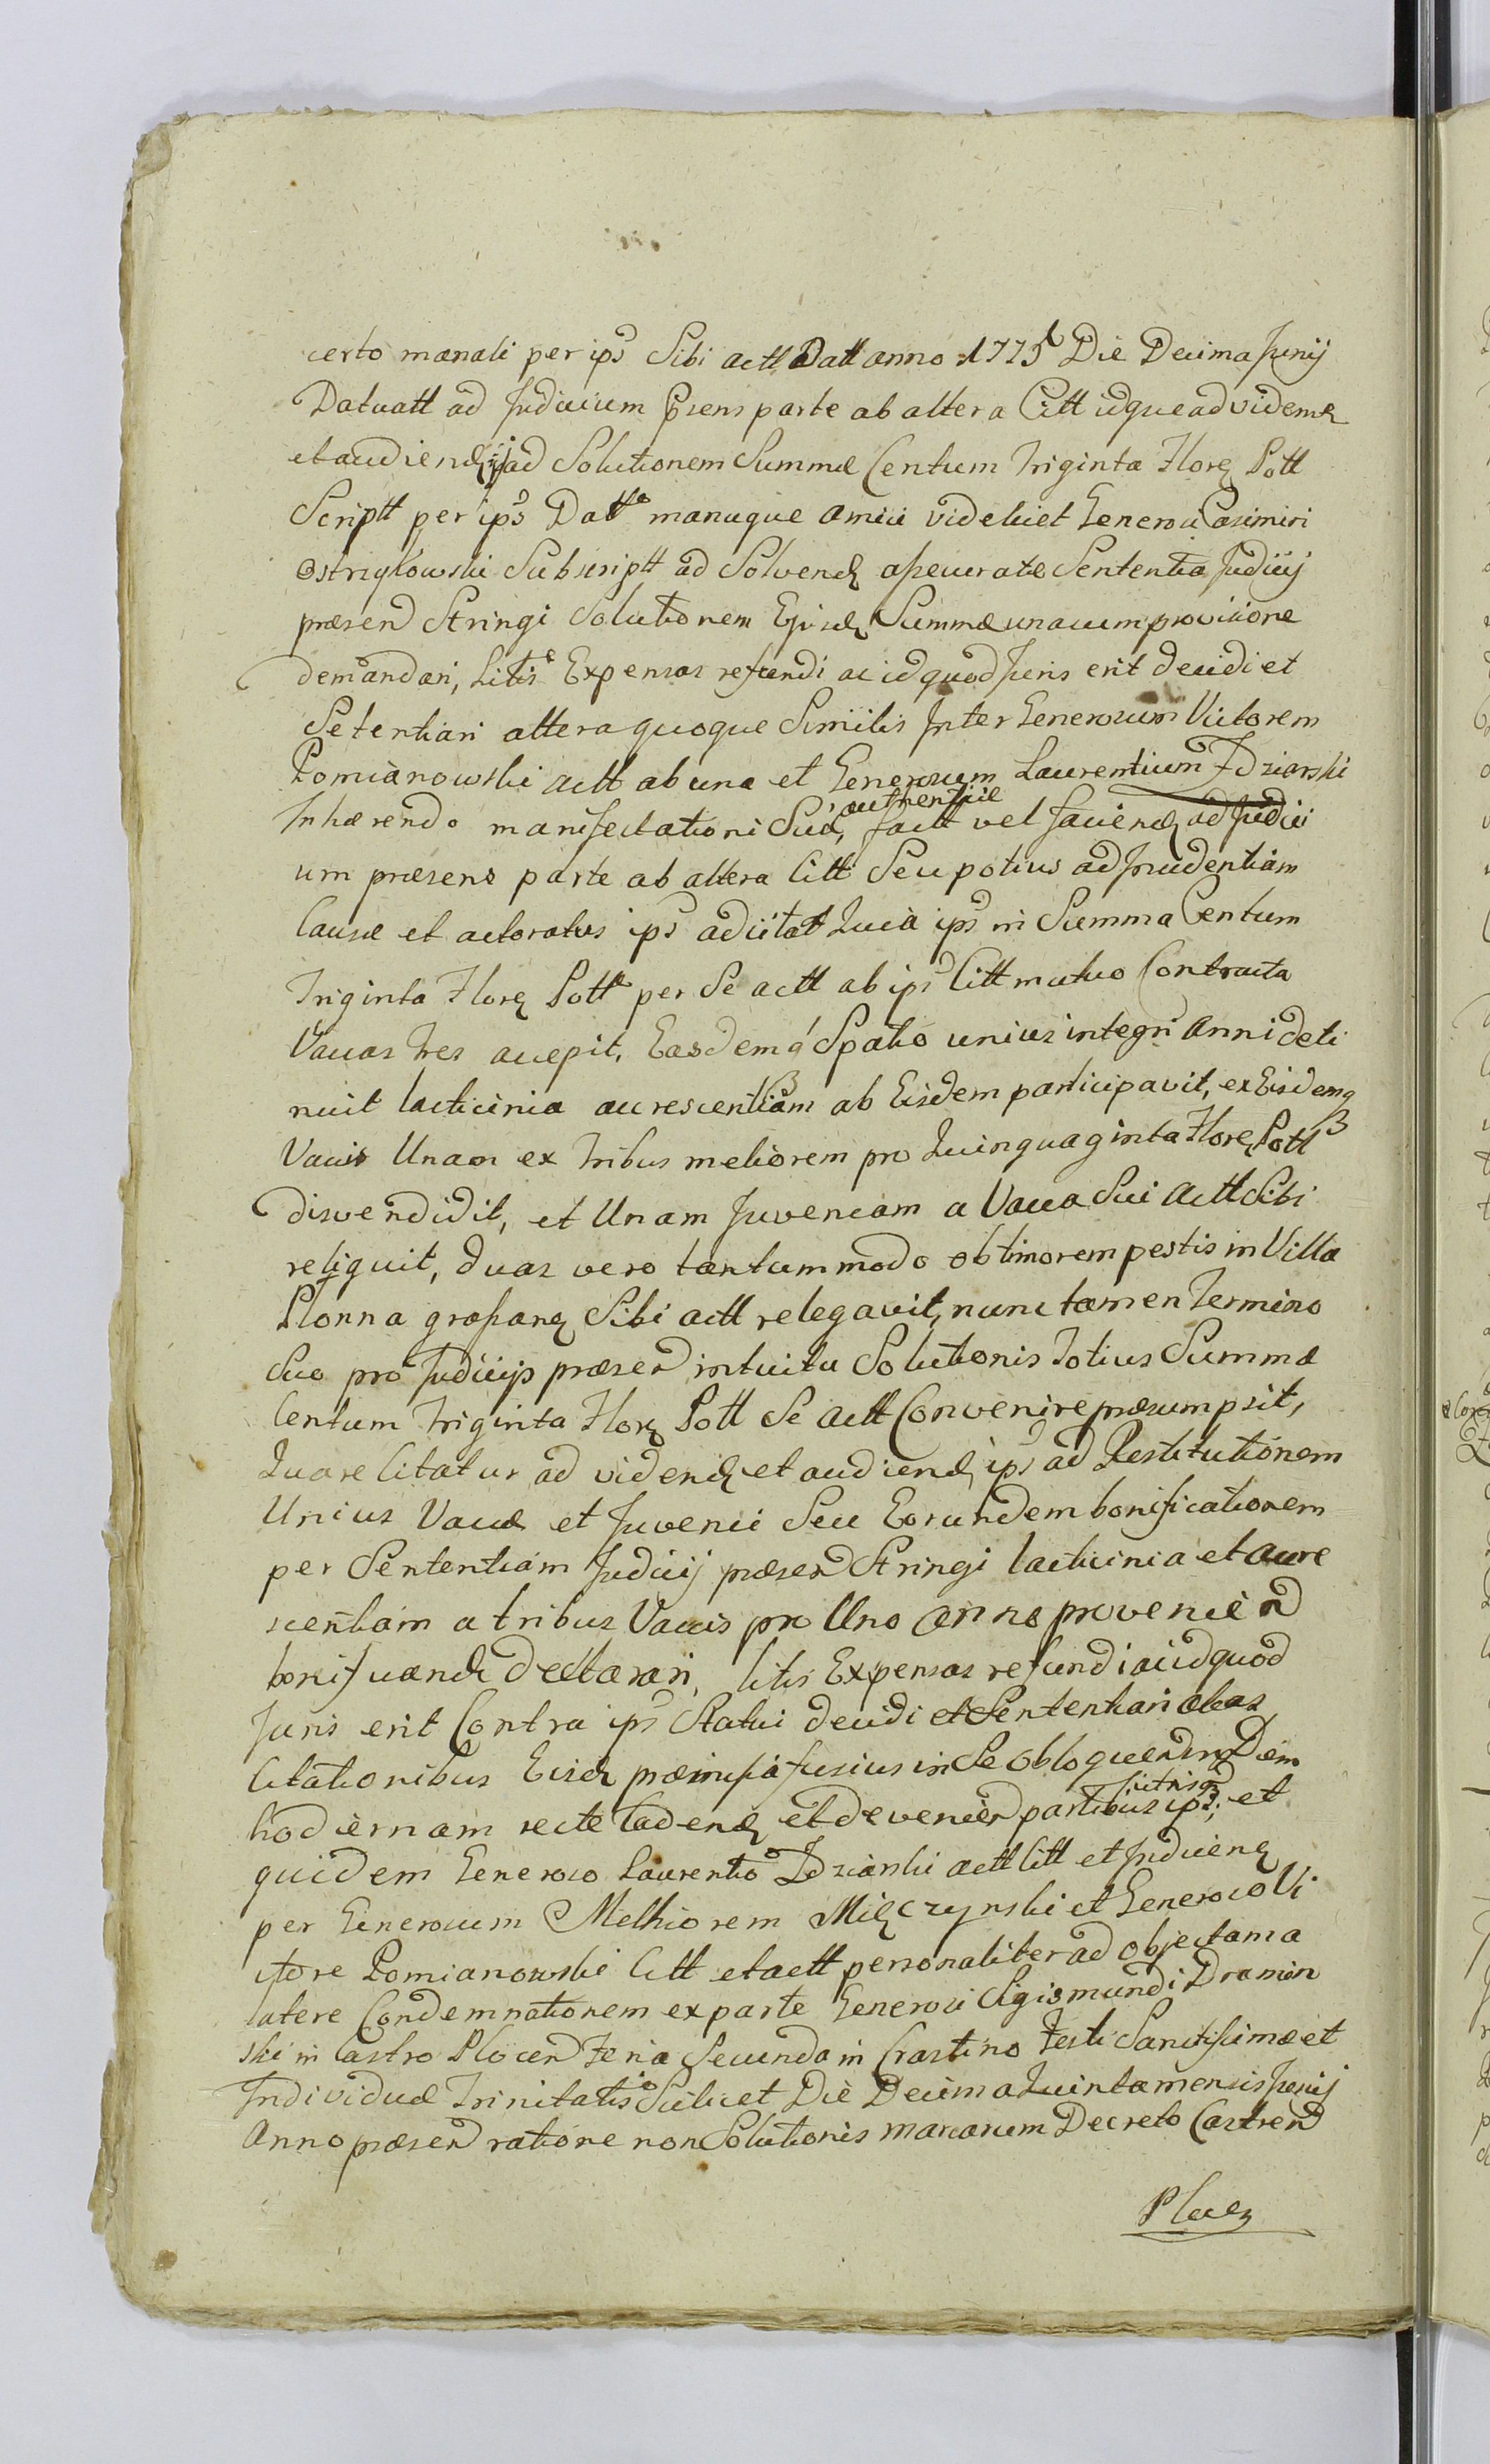 certo manali per ips Sibi actt Datt anno 1775 Die Decima Junij
Datuatt ad Judicium Psens parte ab altera Citt idque ad videndz
et audiendz ad Solutionem Summæ Centum Triginta Florz Pott
Scriptt per ips Datt manuque Amici videlicet Generosi Casimiri
Ostrzykowski Subscriptt ad Solvendz assecuratæ Sententia Judicij
præsen Stringi Solutionem Ejusdz Summæ una cum provisione
demandari, Litis Expensas refundi ac id quod Juris erit decidi et
Setentiari altera quoque Similis Inter Generosum Victorem
Pomianowski actt ab una et Generosum Laurentium Idziarski
Inhærendo manifestationi Suæ, authenticæ factt vel faciendz ad Judici
um præsens parte ab altera Citt Seu potius ad prudentiam
Causæ et actoratus ips adcitat Quia ips in Summa Centum
Triginta Florz Pott per Se actt ab ips Citt mutuo Contracta
Vacas tres accepit, Easdemq Spatio unius integri Anni deti
nuit lacticinia accrescentiam ab Eisdem participavit, ex Eisdemq
Vacis Unam ex Tribus meliorem pro Quinquaginta Florz Pott
disvendidit, et Unam Juvencam a Vaca Sui actt Sibi
reliquit, duas vero tantummodo ob timorem pestis in Villa
Plonna grassandz Sibi actt relegavit, nunc tamen Termino
Suo pro Judicijs præsen intuitu Solutionis Totius Summæ
Centum Triginta Florz Pott Se actt Convenire præsumpsit,
Quare Citatur ad videndz et audiendz ips ad Restitutionem
Unius Vacæ et Juvenci Seu Eorundem bonificationem
per Sententiam Judicij præsen Stringi lacticinia et accre
scentiam a tribus Vacis pro Uno anno provenien
bonificandz declarari, litis Expensas refundi ac id quod
Juris erit Contra ips Statui decidi et Sententiari
Citationibus Eisdz præmissa fusius in Se obloquen in Diem
hodiernam recte Cadendz et devenien partibus utrisq ips; et
quidem Generoso Laurentio Idziarski actt Citt et Judicendz
per Generosum Melhiorem Mięczynski et Generoso Vi
ctore Pomianowski Citt et actt personaliter ad objectam a
latere Condemnationem ex parte Generosi Sigismundi Dramin
ski in Castro Plocen Feria Secunda in Crastino Festi Sanctissimæ et
Individuæ Trinitatis Scilicet Die Decima Quinta mensis Junij
Anno præsen ratione non Solutionis marcarum Decreto Castren